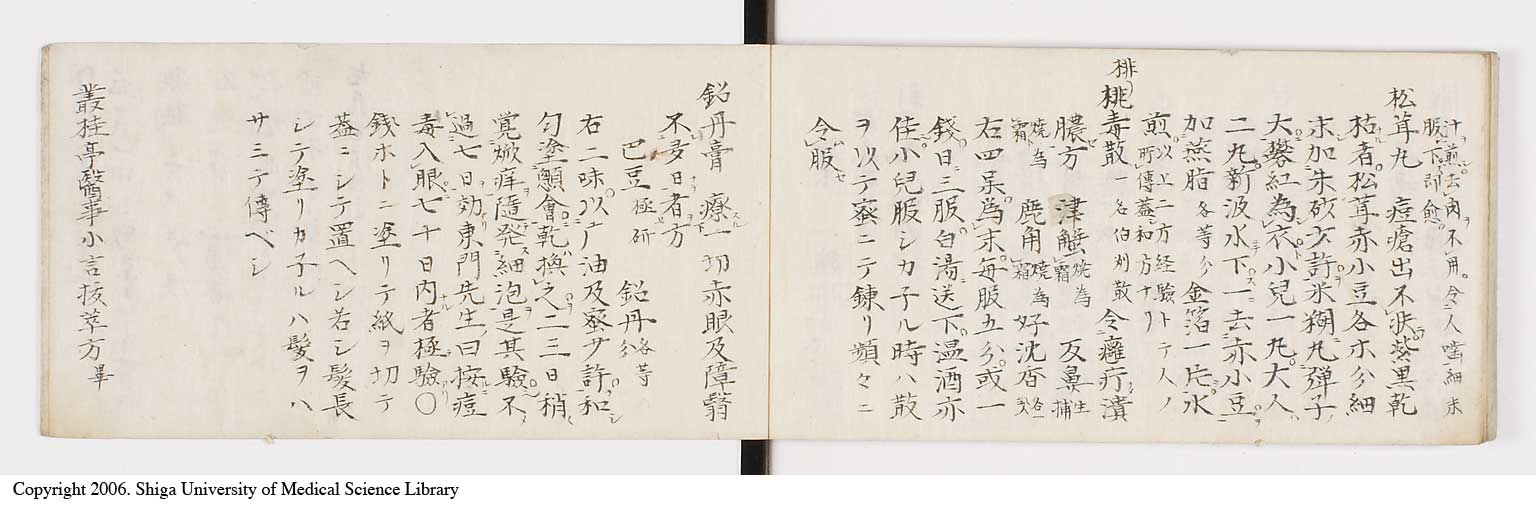 汁煎去肉不用令人噛細末
服下即愈
松茸丸 痘瘡出不快紫黒乾
枯者松茸赤小豆各ホ分細
末加朱砂少許米糊丸弾子
大礬紅為衣小兒一丸大人
二丸新汲水下一去赤小豆
加燕脂各等分金箔一片水
煎以上二方経験トテ人ノ
所傳蓋和方ナリ
排
桃毒散一名伯刕散 令癰疔潰
膿方 津蟹焼為霜 反鼻生捕
焼為霜 鹿角焼為霜 好沈香各一戔
右四呆為末毎服五分或一
錢日三服白湯送下温酒亦
佳小兒服シカ子ル時ハ散
ヲ以テ蜜ニテ錬リ頻々ニ
令服
鉛丹膏 療一切赤眼及障翳
不多日者方
巴豆極研 鉛丹各等分
右二味以ニ油及蜜サ許和
匀塗顖會乾換之二三日稍
覚焮痒隨発細泡是其驗不
過七日効東門先生曰按痘
毒入眼七十日内者極驗〇
銭ホトニ塗リテ紙ヲ切テ
蓋ニシテ置ヘシ若シ髪長
シテ塗リカ子ルハ髪ヲハ
サミテ傳ベシ
叢桂亭醫事小言抜萃方畢
Copyright 2006. Shiga University of Medical Science Library